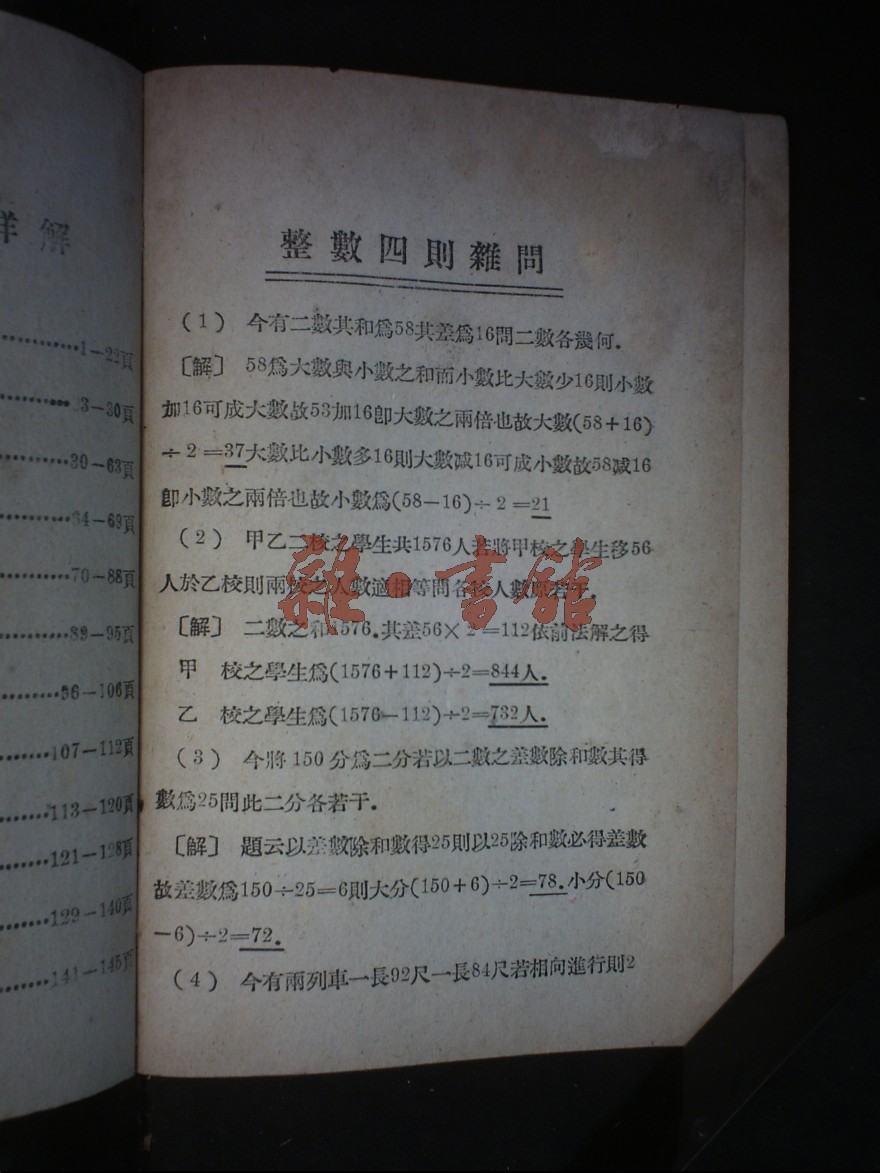 詳解
1—22頁
23—30頁
30—63頁
64—69頁
70—88頁
89—95頁
96—106頁
107—112頁
113—120頁
121—128頁
129—140頁
141—145頁
整數四則雜問
(1) 今有二數其和爲58其差爲16問二數各幾何.
〔解〕 58爲大數與小數之和而小數比大數少16則小數
加16可成大數故53加16卽大數之兩倍也故大數(58+16)
÷2=37大數比小數多16則大數减16可成小數故58减16
卽小數之兩倍也故小數爲(58-16)÷2=21
(2) 甲乙二校之學生共1576人若將甲校之學生移56
人於乙校則兩校之人數適相等問各校人數原若干.
〔解〕 二數之和1576.其差56×2=112依前法解之得
甲 校之學生爲(1576+112)÷2=844人.
乙 校之學生爲(1576-112)÷2=732人.
(3) 今將150分爲二分若以二數之差數除和數其得
數爲25問此二分各若干.
〔解〕 題云以差數除和數得25則以25除和數必得差數
故差數爲150÷25=6則大分(150+6)÷2=78.小分(150
-6)÷2=72.
(4) 今有兩列車一長92尺一長84尺若相向進行則2
雜·書館